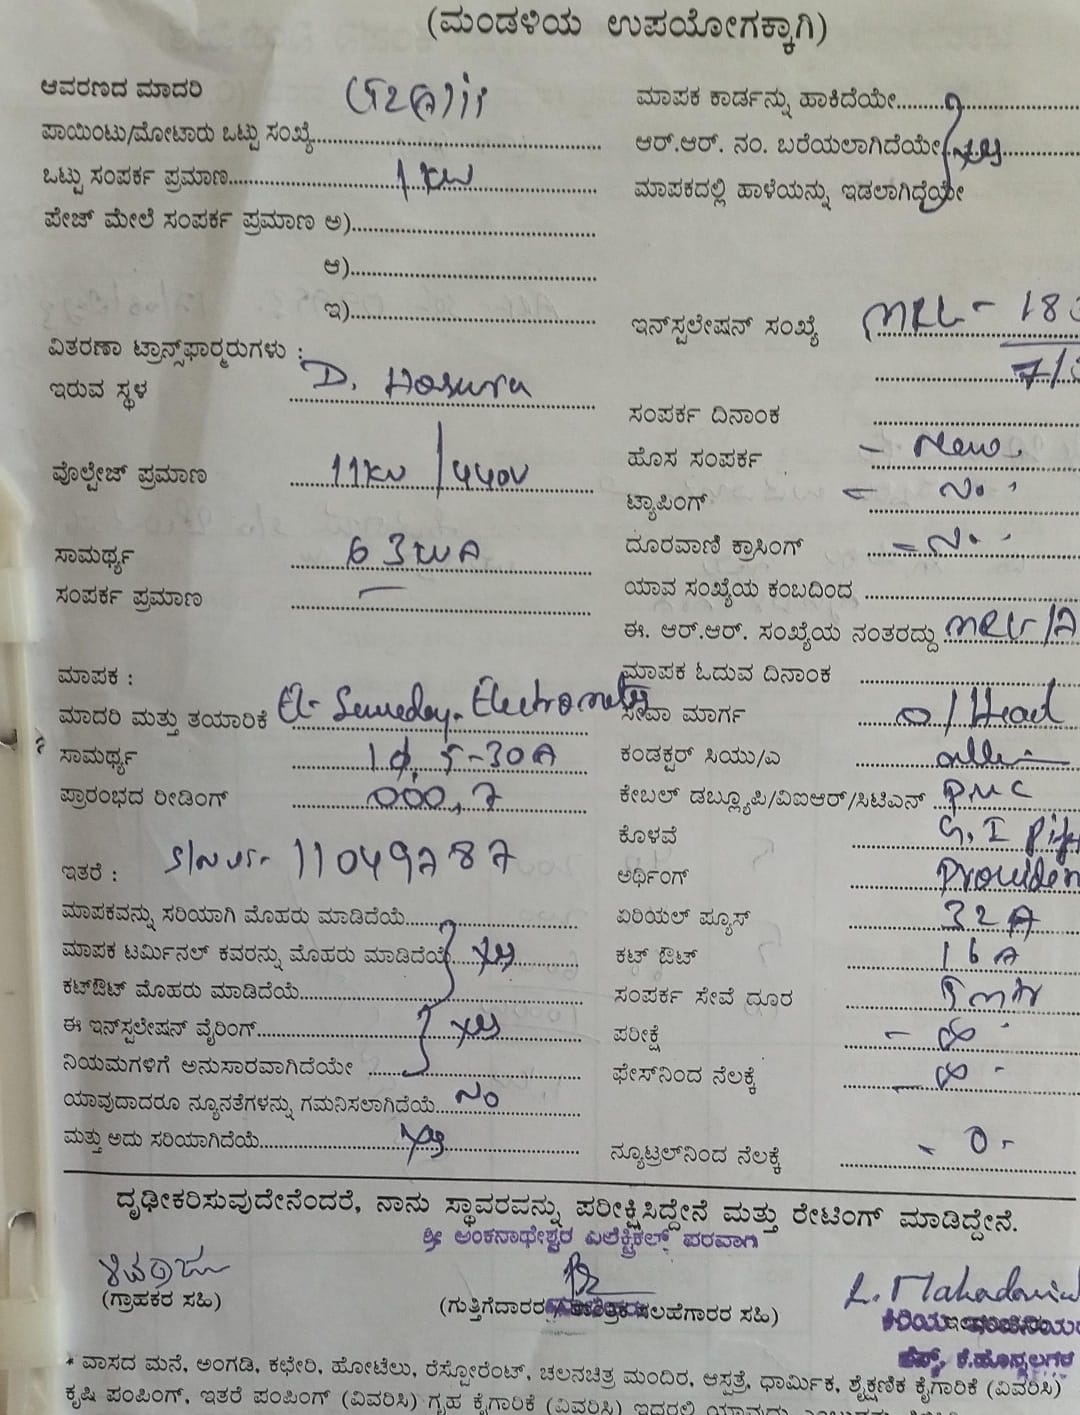 (ಮಂಡಳಿಯ ಉಪಯೋಗಕ್ಕಾಗಿ)
ಆವರಣದ ಮಾದರಿ
ಮಾಪಕ ಕಾರ್ಡನ್ನು ಹಾಕಿದೆಯೇ
ಪಾಯಿಂಟು/ಮೋಟಾರು ಒಟ್ಟು ಸಂಖ್ಯೆ
ಆರ್.ಆರ್. ನಂ. ಬರೆಯಲಾಗಿದೆಯೇ yes
ಒಟ್ಟು ಸಂಪರ್ಕ ಪ್ರಮಾಣ 1 KW
ಮಾಪಕದಲ್ಲಿ ಹಾಳೆಯನ್ನು ಇಡಲಾಗಿದೆಯೇ
ಪೇಜ್ ಮೇಲೆ ಸಂಪರ್ಕ ಪ್ರಮಾಣ ಅ)
ಆ)
ಇ)
ಇನ್‌ಸ್ಟಲೇಷನ್ ಸಂಖ್ಯೆ
ವಿತರಣಾ ಟ್ರಾನ್ಸ್‌ಫಾರ್‍ಮರುಗಳು :
ಇರುವ ಸ್ಥಳ D. Hosuru
ಸಂಪರ್ಕ ದಿನಾಂಕ
ಹೊಸ ಸಂಪರ್ಕ - New -
ವೊಲ್ಟೇಜ್ ಪ್ರಮಾಣ 11KV/440V
ಟ್ಯಾಪಿಂಗ್ - No -
ಸಾಮರ್ಥ್ಯ 63 KVA
ದೂರವಾಣಿ ಕ್ರಾಸಿಂಗ್ - No -
ಸಂಪರ್ಕ ಪ್ರಮಾಣ
ಯಾವ ಸಂಖ್ಯೆಯ ಕಂಬದಿಂದ
ಈ. ಆರ್.ಆರ್. ಸಂಖ್ಯೆಯ ನಂತರದ್ದು
ಮಾಪಕ :
ಮಾಪಕ ಓದುವ ದಿನಾಂಕ
ಮಾದರಿ ಮತ್ತು ತಯಾರಿಕೆ
ಸೇವಾ ಮಾರ್ಗ O/Head
ಸಾಮರ್ಥ್ಯ 1φ, 5-30A
ಕಂಡಕ್ಟರ್ ಸಿಯು/ಎ
ಪ್ರಾರಂಭದ ರೀಡಿಂಗ್ 000,7
ಕೇಬಲ್ ಡಬ್ಲ್ಯೂಪಿ/ವಿಐಆರ್/ಸಿಟಿಎನ್
ಕೊಳವೆ G.I Pipe
ಇತರೆ : 11049787
ಅರ್ಥಿಂಗ್
ಮಾಪಕವನ್ನು ಸರಿಯಾಗಿ ಮೊಹರು ಮಾಡಿದೆಯೆ
ಏರಿಯಲ್ ಫ್ಯೂಸ್ 32A
ಮಾಪಕ ಟರ್ಮಿನಲ್ ಕವರನ್ನು ಮೊಹರು ಮಾಡಿದೆಯೆ yes
ಕಟ್ ಔಟ್ 16A
ಕಟ್‌ಔಟ್ ಮೊಹರು ಮಾಡಿದೆಯೆ
ಸಂಪರ್ಕ ಸೇವೆ ದೂರ
ಈ ಇನ್‌ಸ್ಟಲೇಷನ್ ವೈರಿಂಗ್ yes
ಪರೀಕ್ಷೆ - ∞ -
ನಿಯಮಗಳಿಗೆ ಅನುಸಾರವಾಗಿದೆಯೇ
ಫೇಸ್‌ನಿಂದ ನೆಲಕ್ಕೆ - ∞ -
ಯಾವುದಾದರೂ ನ್ಯೂನತೆಗಳನ್ನು ಗಮನಿಸಲಾಗಿದೆಯೆ No
ಮತ್ತು ಅದು ಸರಿಯಾಗಿದೆಯೆ yes
ನ್ಯೂಟ್ರಲ್‌ನಿಂದ ನೆಲಕ್ಕೆ - 0 -
ದೃಢೀಕರಿಸುವುದೇನೆಂದರೆ, ನಾನು ಸ್ಥಾವರವನ್ನು ಪರೀಕ್ಷಿಸಿದ್ದೇನೆ ಮತ್ತು ರೇಟಿಂಗ್ ಮಾಡಿದ್ದೇನೆ.
ಶ್ರೀ ಅಂಕನಾಥೇಶ್ವರ ಎಲೆಕ್ಟ್ರಿಕಲ್ಸ್ ಪರವಾಗಿ
(ಗ್ರಾಹಕರ ಸಹಿ)
(ಗುತ್ತಿಗೆದಾರರ ಸಲಹೆಗಾರರ ಸಹಿ)
* ವಾಸದ ಮನೆ, ಅಂಗಡಿ, ಕಛೇರಿ, ಹೋಟೆಲು, ರೆಸ್ಟೋರೆಂಟ್, ಚಲನಚಿತ್ರ ಮಂದಿರ, ಆಸ್ಪತ್ರೆ, ಧಾರ್ಮಿಕ, ಶೈಕ್ಷಣಿಕ ಕೈಗಾರಿಕೆ (ವಿವರಿಸಿ)
ಕೃಷಿ ಪಂಪಿಂಗ್, ಇತರೆ ಪಂಪಿಂಗ್ (ವಿವರಿಸಿ) ಗೃಹ ಕೈಗಾರಿಕೆ (ವಿವರಿಸಿ) ಇದರಲ್ಲಿ